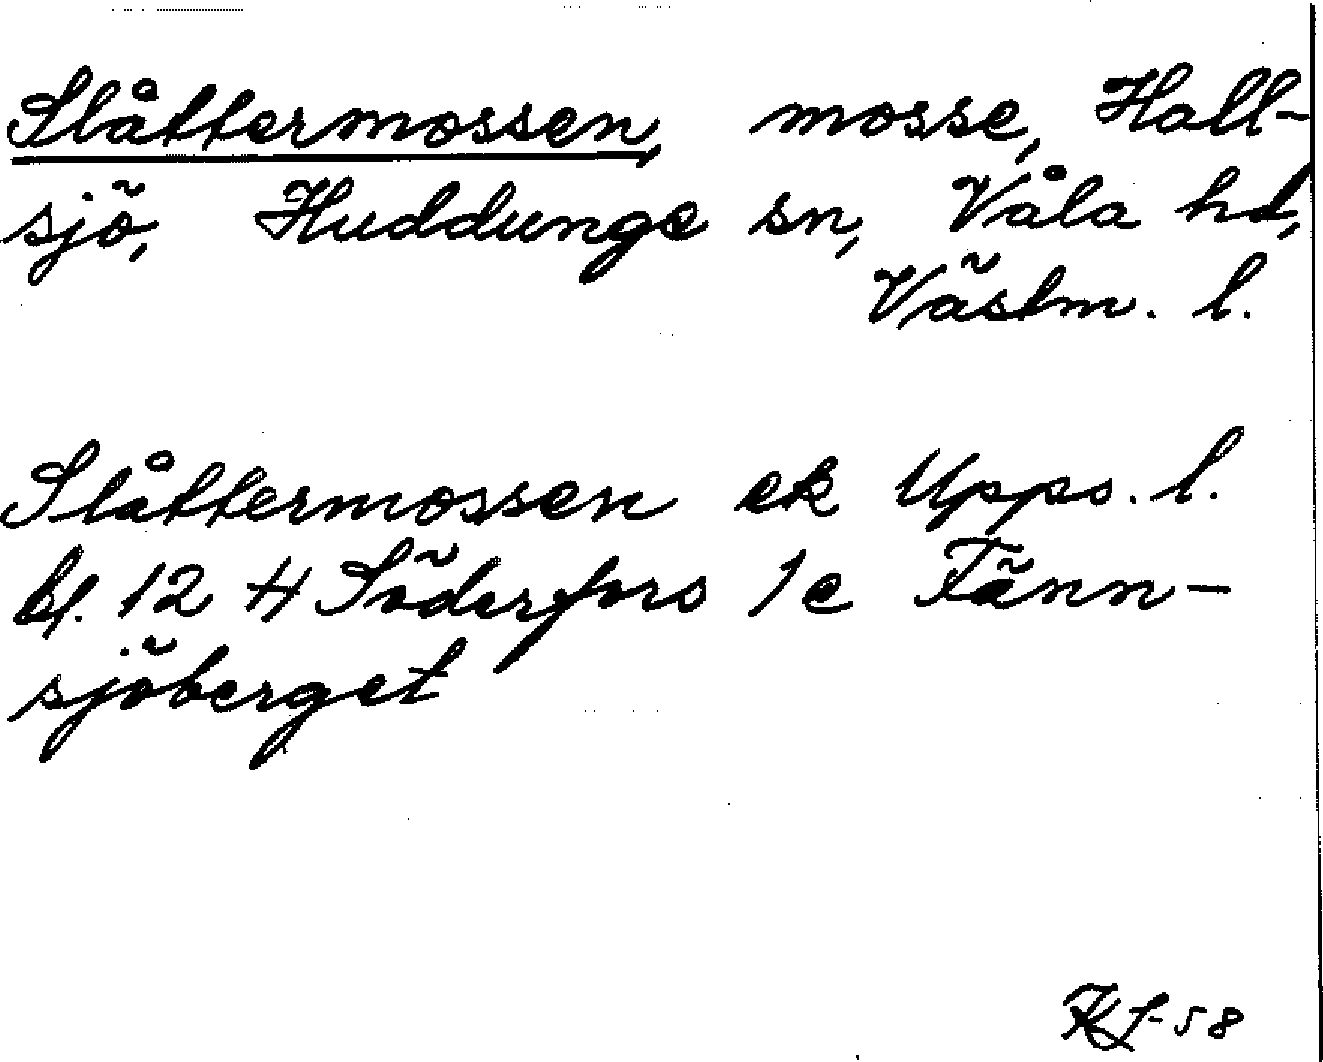 Slåttermossen, mosse, Hall-
sjö, Huddunge sn, Våla hd,
Västm. l.
Slåttermossen ek Upps. l.
bl. 12 H Söderfors 1 e Tänn-
sjöberget
-58